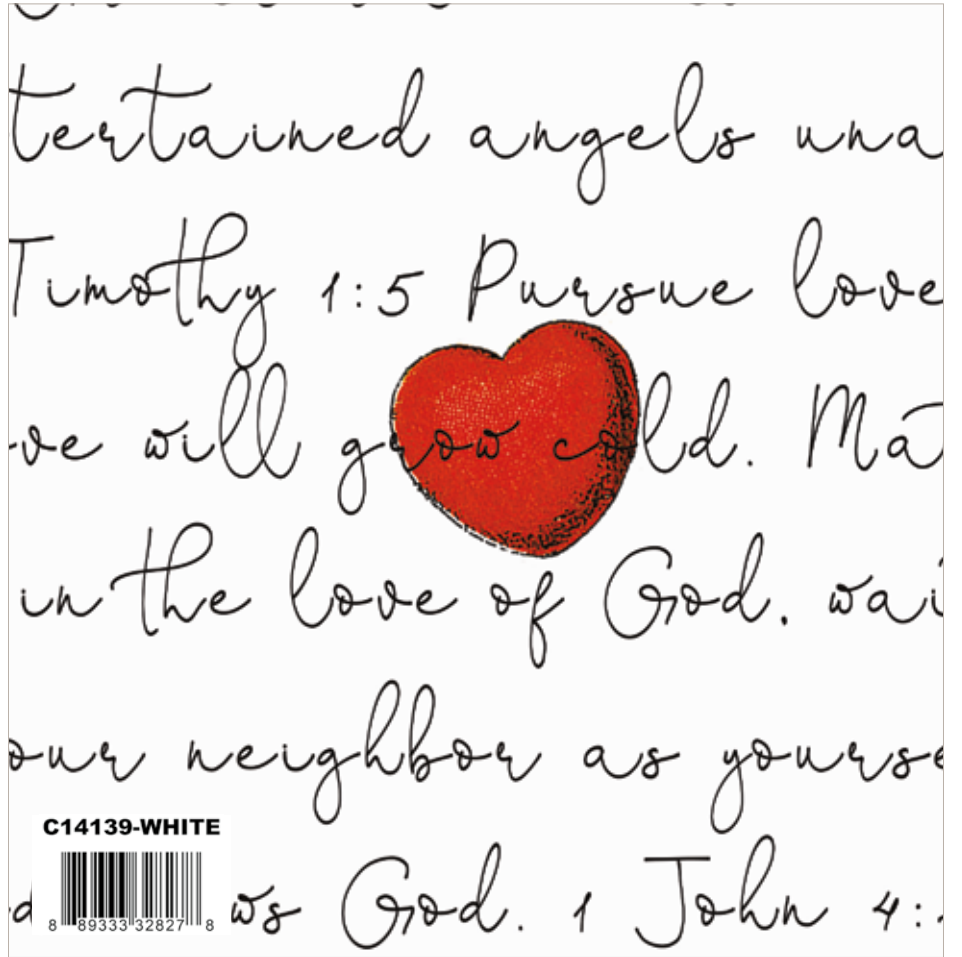 tertained angels una
Timothy 1:5 Pursue love
ve will grow cold. Mat
in the love of God, wai
our neighbor as yourse
C14139-WHITE
8 89333 32827 8
ws God. 1 John 4: